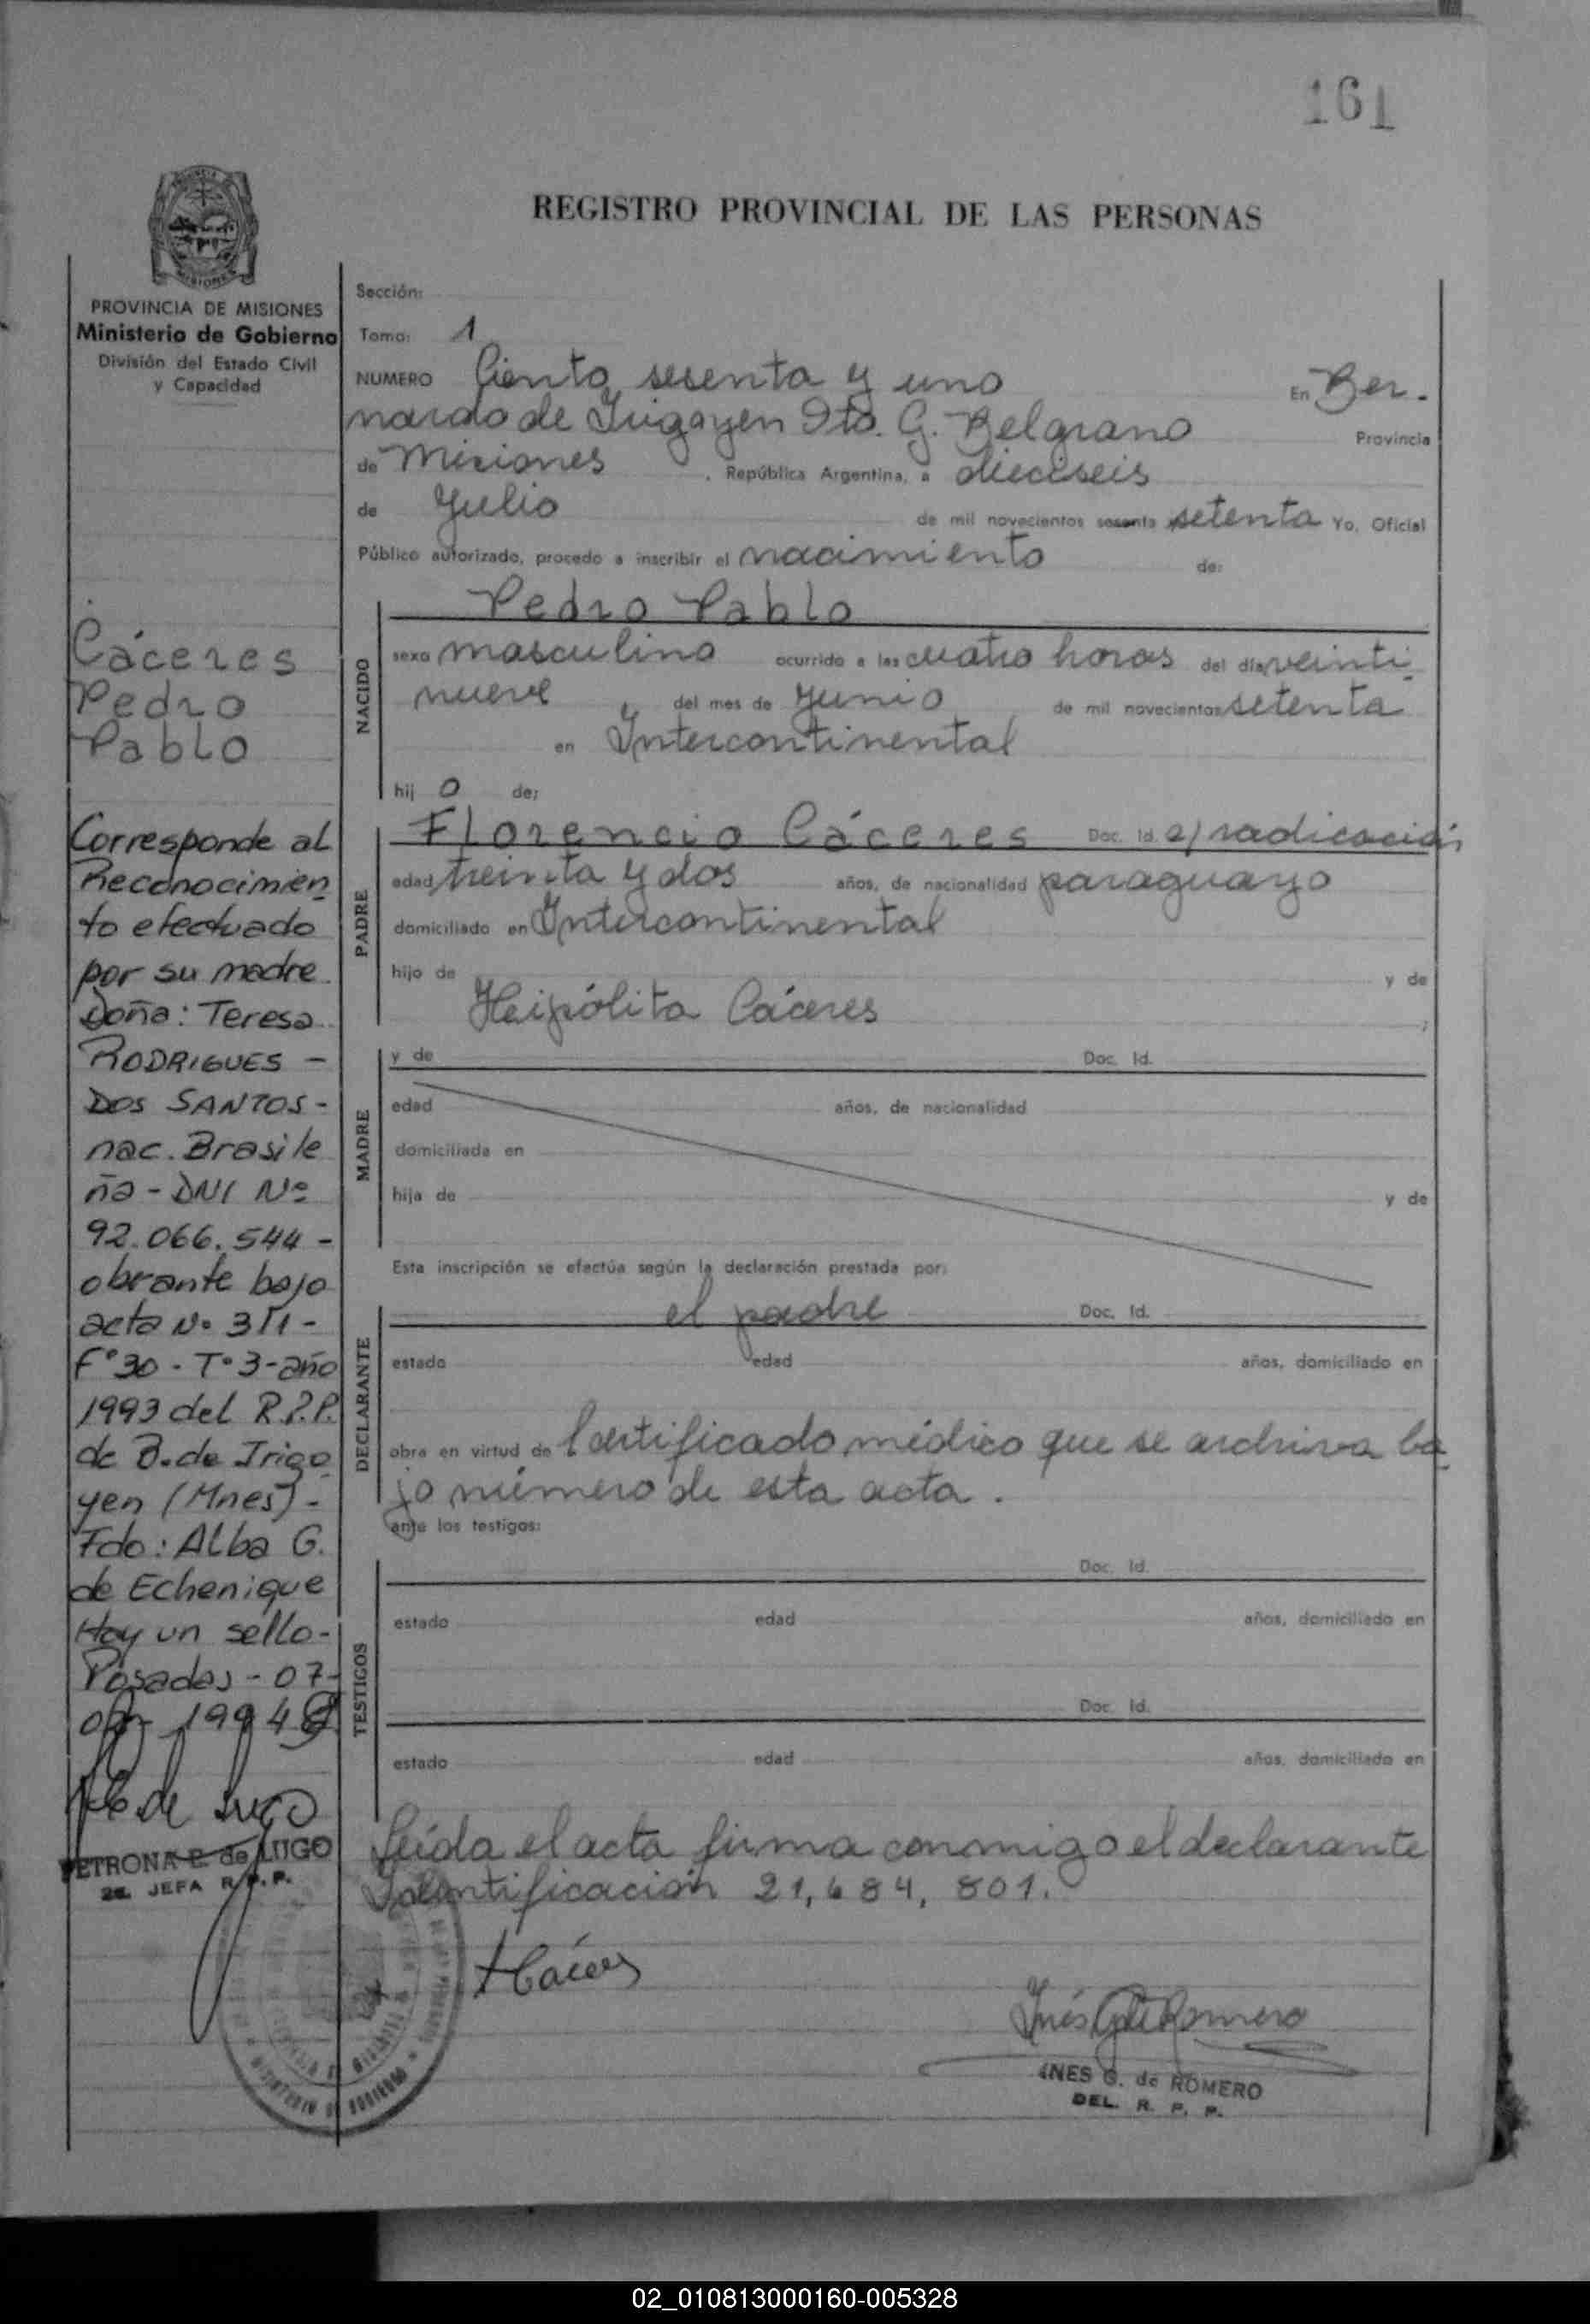 161
REGISTRO PROVINCIAL DE LAS PERSONAS
PROVINCIA DE MISIONES
Ministerio de Gobierno
División del Estado Civil
y Capacidad
Cáceres
Pedro
Pablo
Corresponde al
Reconocimien
to efectuado
por su madre
Doña: Teresa
RODRIGUES -
DOS SANTOS -
nac. Brasile
ña - DNI Nº
92.066.544 -
obrante bajo
acta Nº 311 -
Fº 30 - Tº 3 - año
1993 del R.P.P.
de B. de Irigo
yen (Mnes) -
Fdo: Alba G.
de Echenique
Hay un sello -
Posadas - 07 -
1994
PETRONA E de LUGO
2a. JEFA R.P.P.
Sección:
Tomo: 1
NUMERO Ciento sesenta y uno En Ber-
nardo de Irigoyen Dto. G. Belgrano Provincia
de Misiones , República Argentina, a dieciseis
de Julio de mil novecientos sesenta setenta Yo, Oficial
Público autorizado, procedo a inscribir el nacimiento de:
Pedro Pablo
NACIDO
sexo masculino ocurrido a las cuatro horas del día veinti-
nueve del mes de Junio de mil novecientos setenta
en Intercontinental
hij o de:
PADRE
Florencio Cáceres Doc. Id. c/radicación
edad treinta y dos años, de nacionalidad paraguayo
domiciliado en Intercontinental
hijo de y de
Heipólita Cáceres ;
MADRE
y de Doc. Id.
edad años, de nacionalidad
domiciliada en
hija de y de
Esta inscripción se efectúa según la declaración prestada por:
DECLARANTE
el padre Doc. Id.
estado edad años, domiciliado en
obra en virtud de Certificado médico que se archiva ba-
jo número de esta acta.
ante los testigos:
TESTIGOS
Doc. Id.
estado edad años, domiciliado en
Doc. Id.
estado edad años, domiciliado en
Leída el acta firma conmigo el declarante
Identificación 21,684,801.
Inés G de Romero
INES G. de ROMERO
DEL. R. P. P.
02_010813000160-005328